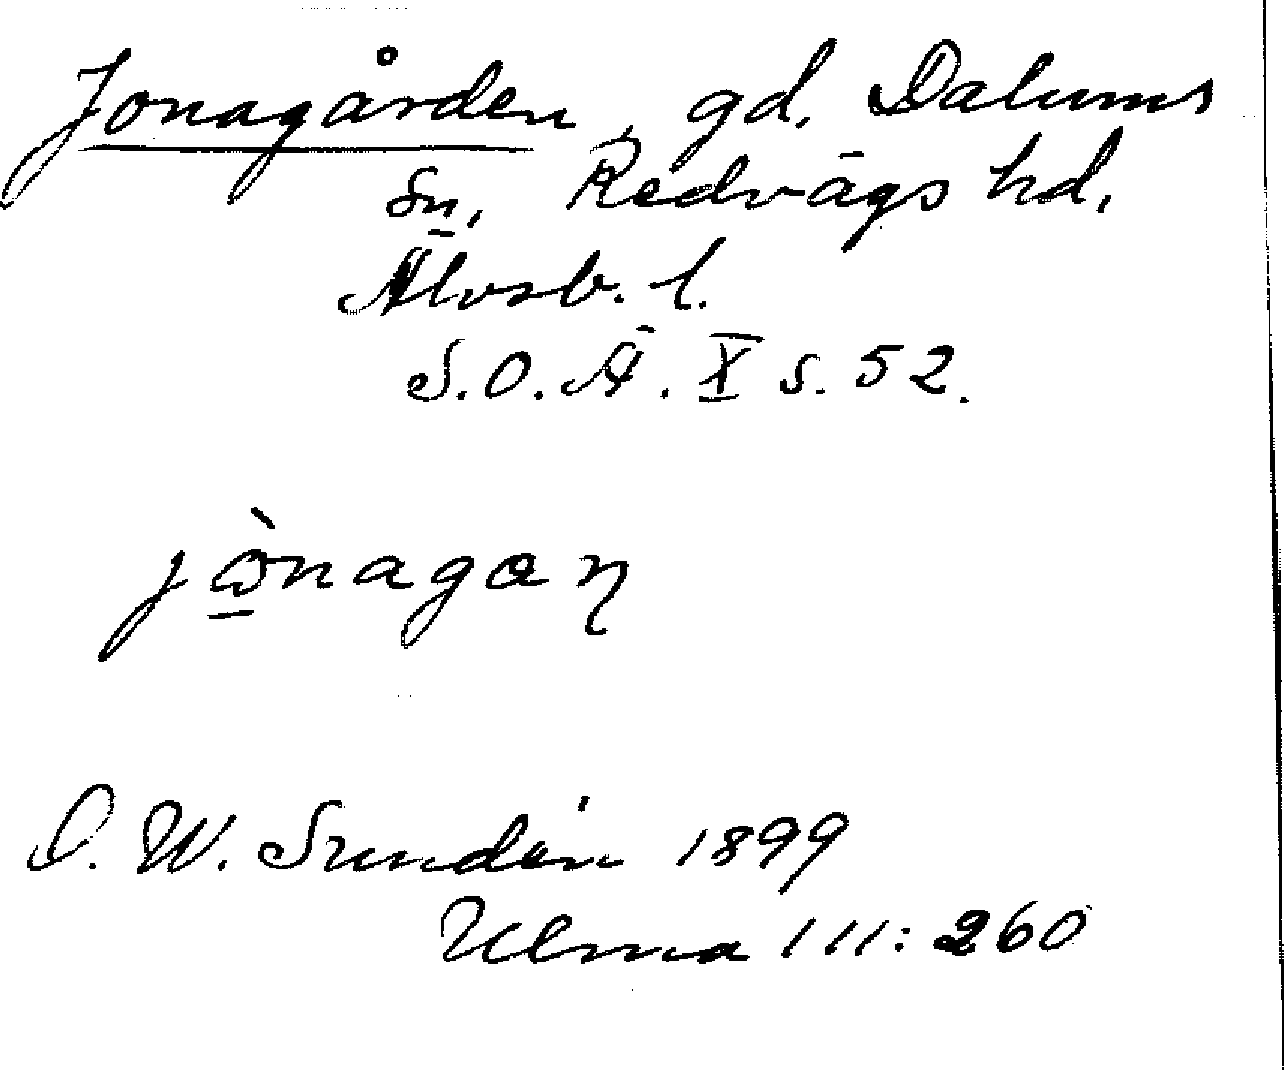 Jonagården, gd. Dalums
sn, Redvägs hd.
Älvsb. l.
S.O.Ä. X s. 52.
D. W. Sundén 1899
Ulma 111:260